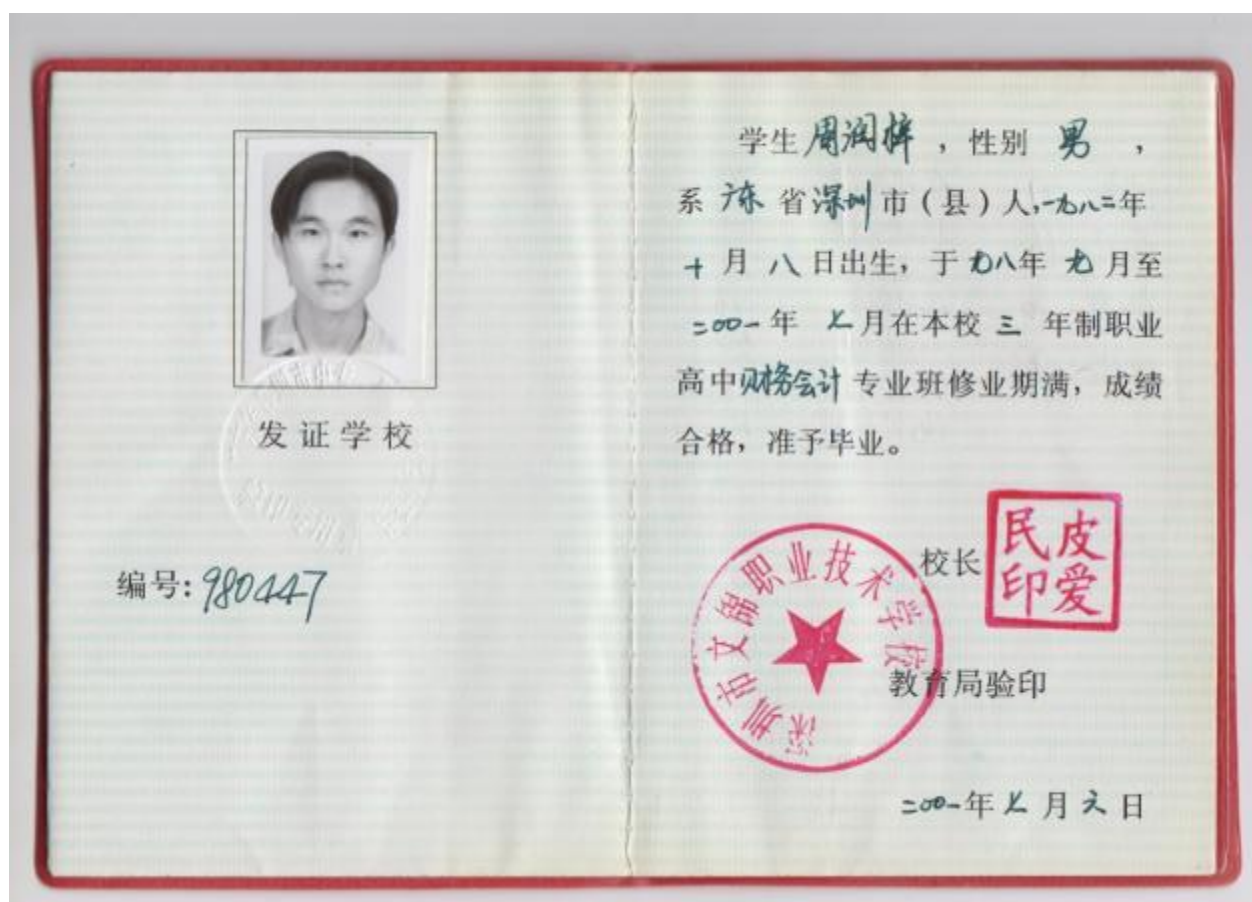 发证学校
编号:980447
学生周润梓,性别 男 ,
系 广东 省深圳市(县)人,一九八二年
十 月 八 日出生,于九八年 九 月至
二00一年 七月在本校 三 年制职业
高中财务会计 专业班修业期满,成绩
合格,准予毕业。
校长
皮爱民印
深圳市文锦职业技术学校
教育局验印
二00一年七月六日